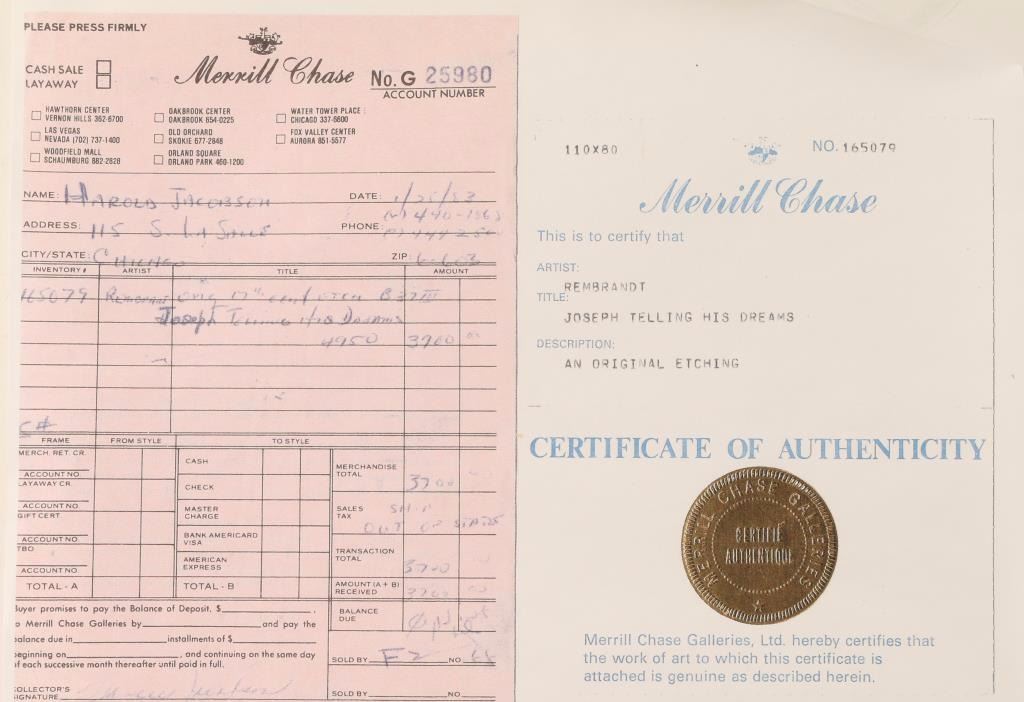 PLEASE PRESS FIRMLY
CASH SALE
LAYAWAY
Merrill Chase
No. G 25980
ACCOUNT NUMBER
HAWTHORN CENTER
VERNON HILLS 362-6700
LAS VEGAS
NEVADA (702) 737-1400
WOODFIELD MALL
SCHAUMBURG 882-2828
OAKBROOK CENTER
OAKBROOK 654-0225
OLD ORCHARD
SKOKIE 677-2848
ORLAND SQUARE
ORLAND PARK 460-1200
WATER TOWER PLACE
CHICAGO 337-6600
FOX VALLEY CENTER
AURORA 851-5577
NAME: HAROLD JACOBSON DATE: 1/25/83
ADDRESS: 115 S. LA SALLE PHONE:
CITY/STATE: CHICAGO ZIP: 60603
INVENTORY # ARTIST TITLE AMOUNT
165079 Rembrandt orig 17th cent etch B37 III
Joseph Telling His Dreams
4950 3700
FRAME FROM STYLE TO STYLE
MERCH. RET. CR.
ACCOUNT NO.
LAYAWAY CR.
ACCOUNT NO.
GIFT CERT.
ACCOUNT NO.
TBO
ACCOUNT NO.
TOTAL - A
CASH
CHECK
MASTER CHARGE
BANK AMERICARD
VISA
AMERICAN EXPRESS
TOTAL - B
MERCHANDISE TOTAL 3700
SALES TAX OUT OF STATE
TRANSACTION TOTAL 3700
AMOUNT (A + B) RECEIVED 3700
BALANCE DUE
Buyer promises to pay the Balance of Deposit, $ ,
to Merrill Chase Galleries by and pay the
balance due in installments of $
beginning on , and continuing on the same day
of each successive month thereafter until paid in full.
SOLD BY F2 NO.
COLLECTOR'S
SIGNATURE
SOLD BY NO.
110X80
NO. 165079
Merrill Chase
This is to certify that
ARTIST:
REMBRANDT
TITLE:
JOSEPH TELLING HIS DREAMS
DESCRIPTION:
AN ORIGINAL ETCHING
CERTIFICATE OF AUTHENTICITY
MERRILL CHASE GALLERIES
CERTIFIÉ
AUTHENTIQUE
Merrill Chase Galleries, Ltd. hereby certifies that
the work of art to which this certificate is
attached is genuine as described herein.